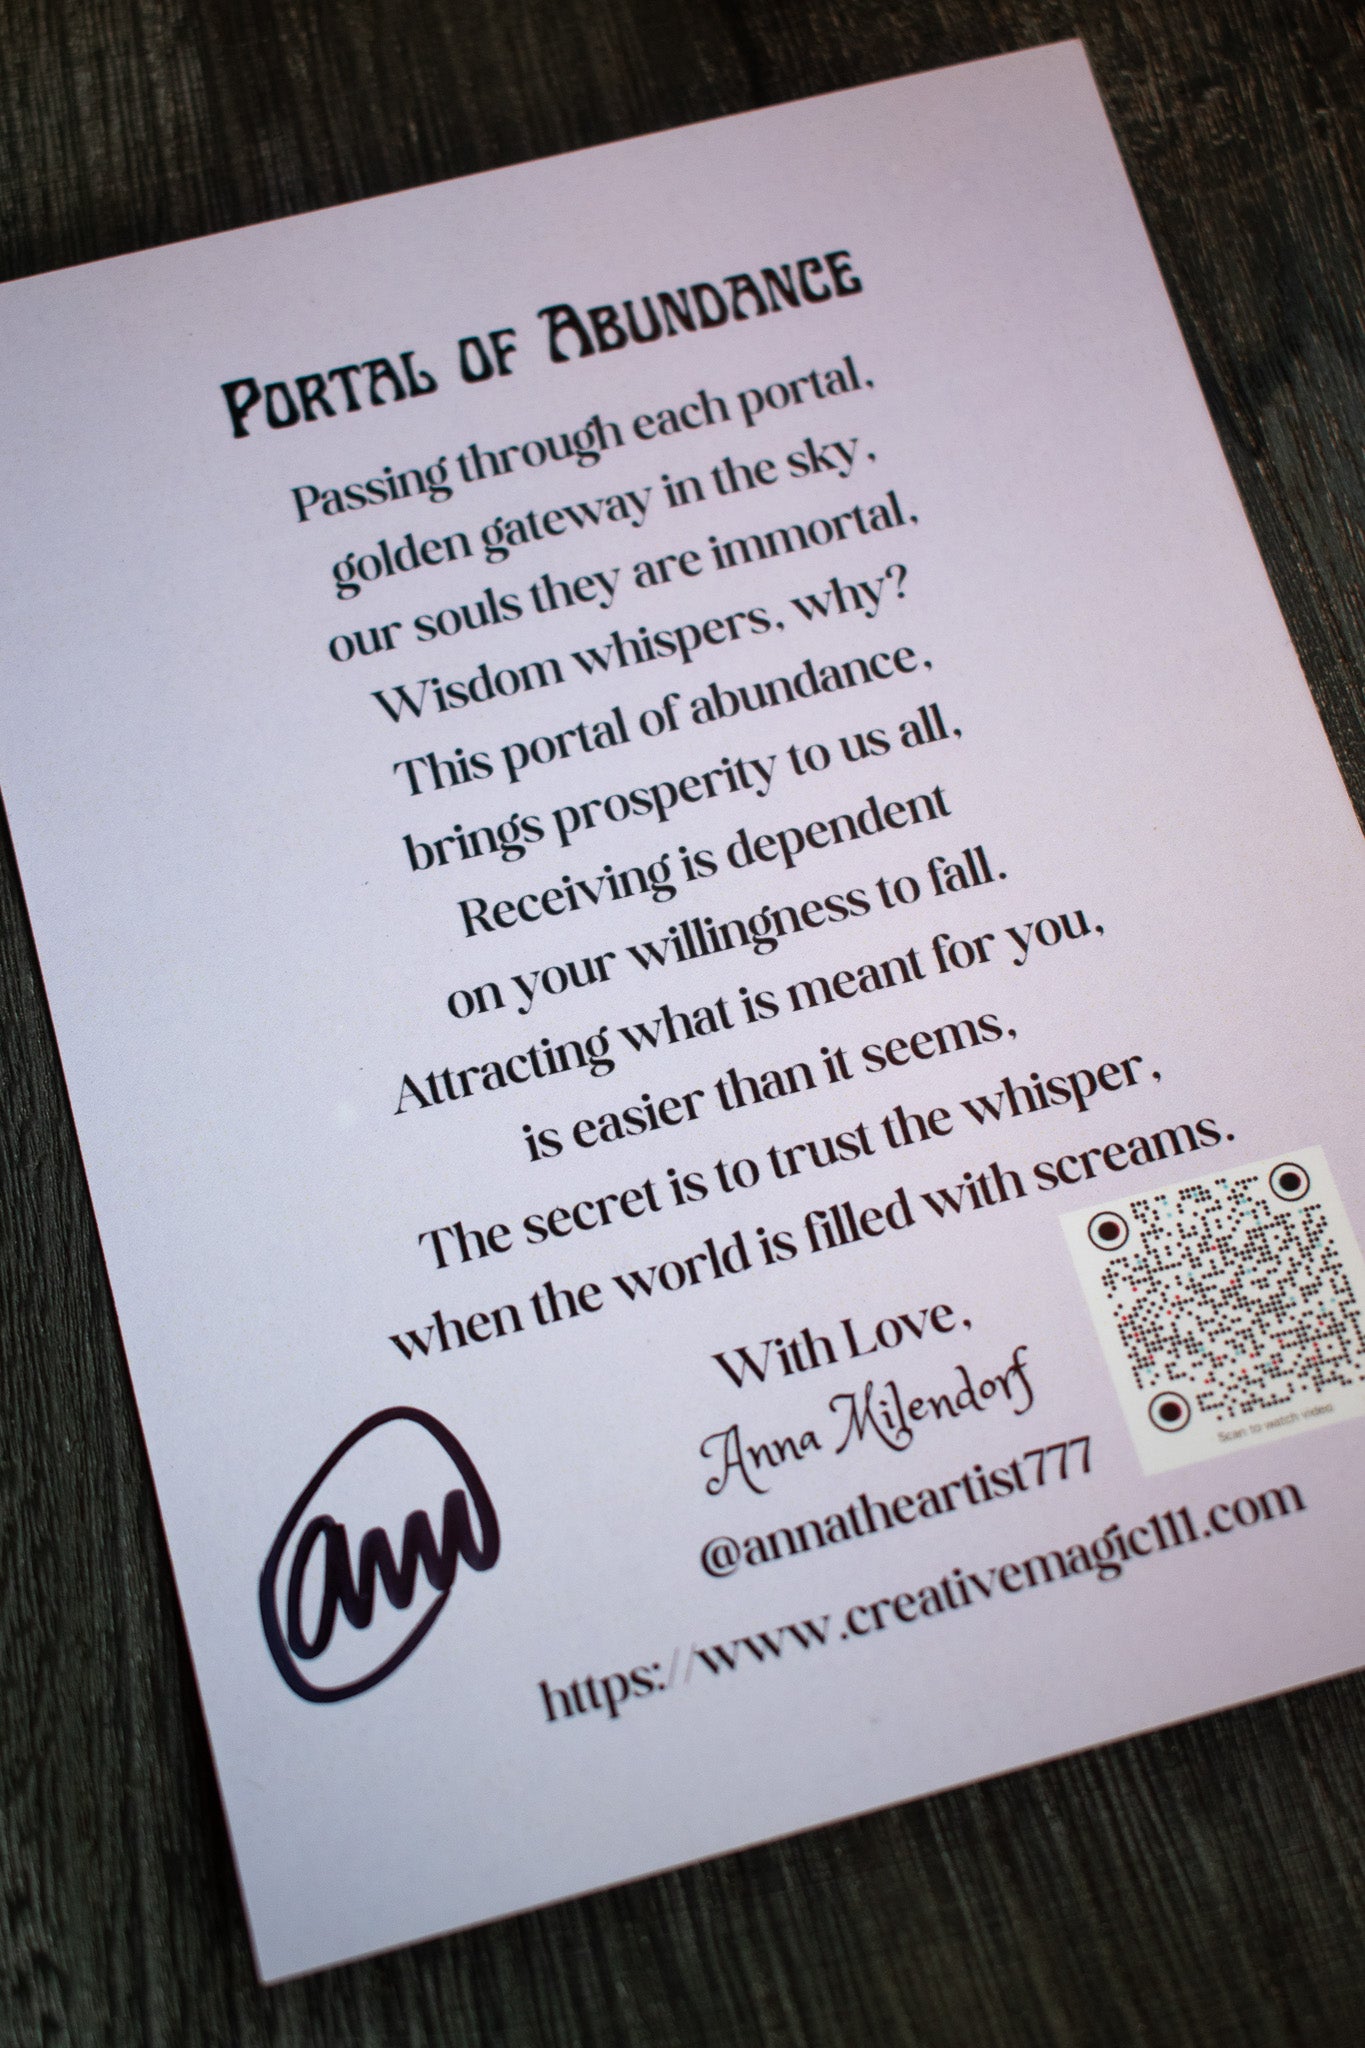 PORTAL OF ABUNDANCE
Passing through each portal,
golden gateway in the sky,
our souls they are immortal,
Wisdom whispers, why?
This portal of abundance,
brings prosperity to us all,
Receiving is dependent
on your willingness to fall.
Attracting what is meant for you,
is easier than it seems,
The secret is to trust the whisper,
when the world is filled with screams.
With Love,
Anna Milendorf
@annatheartist777
https://www.creativemagic111.com
Scan to watch video